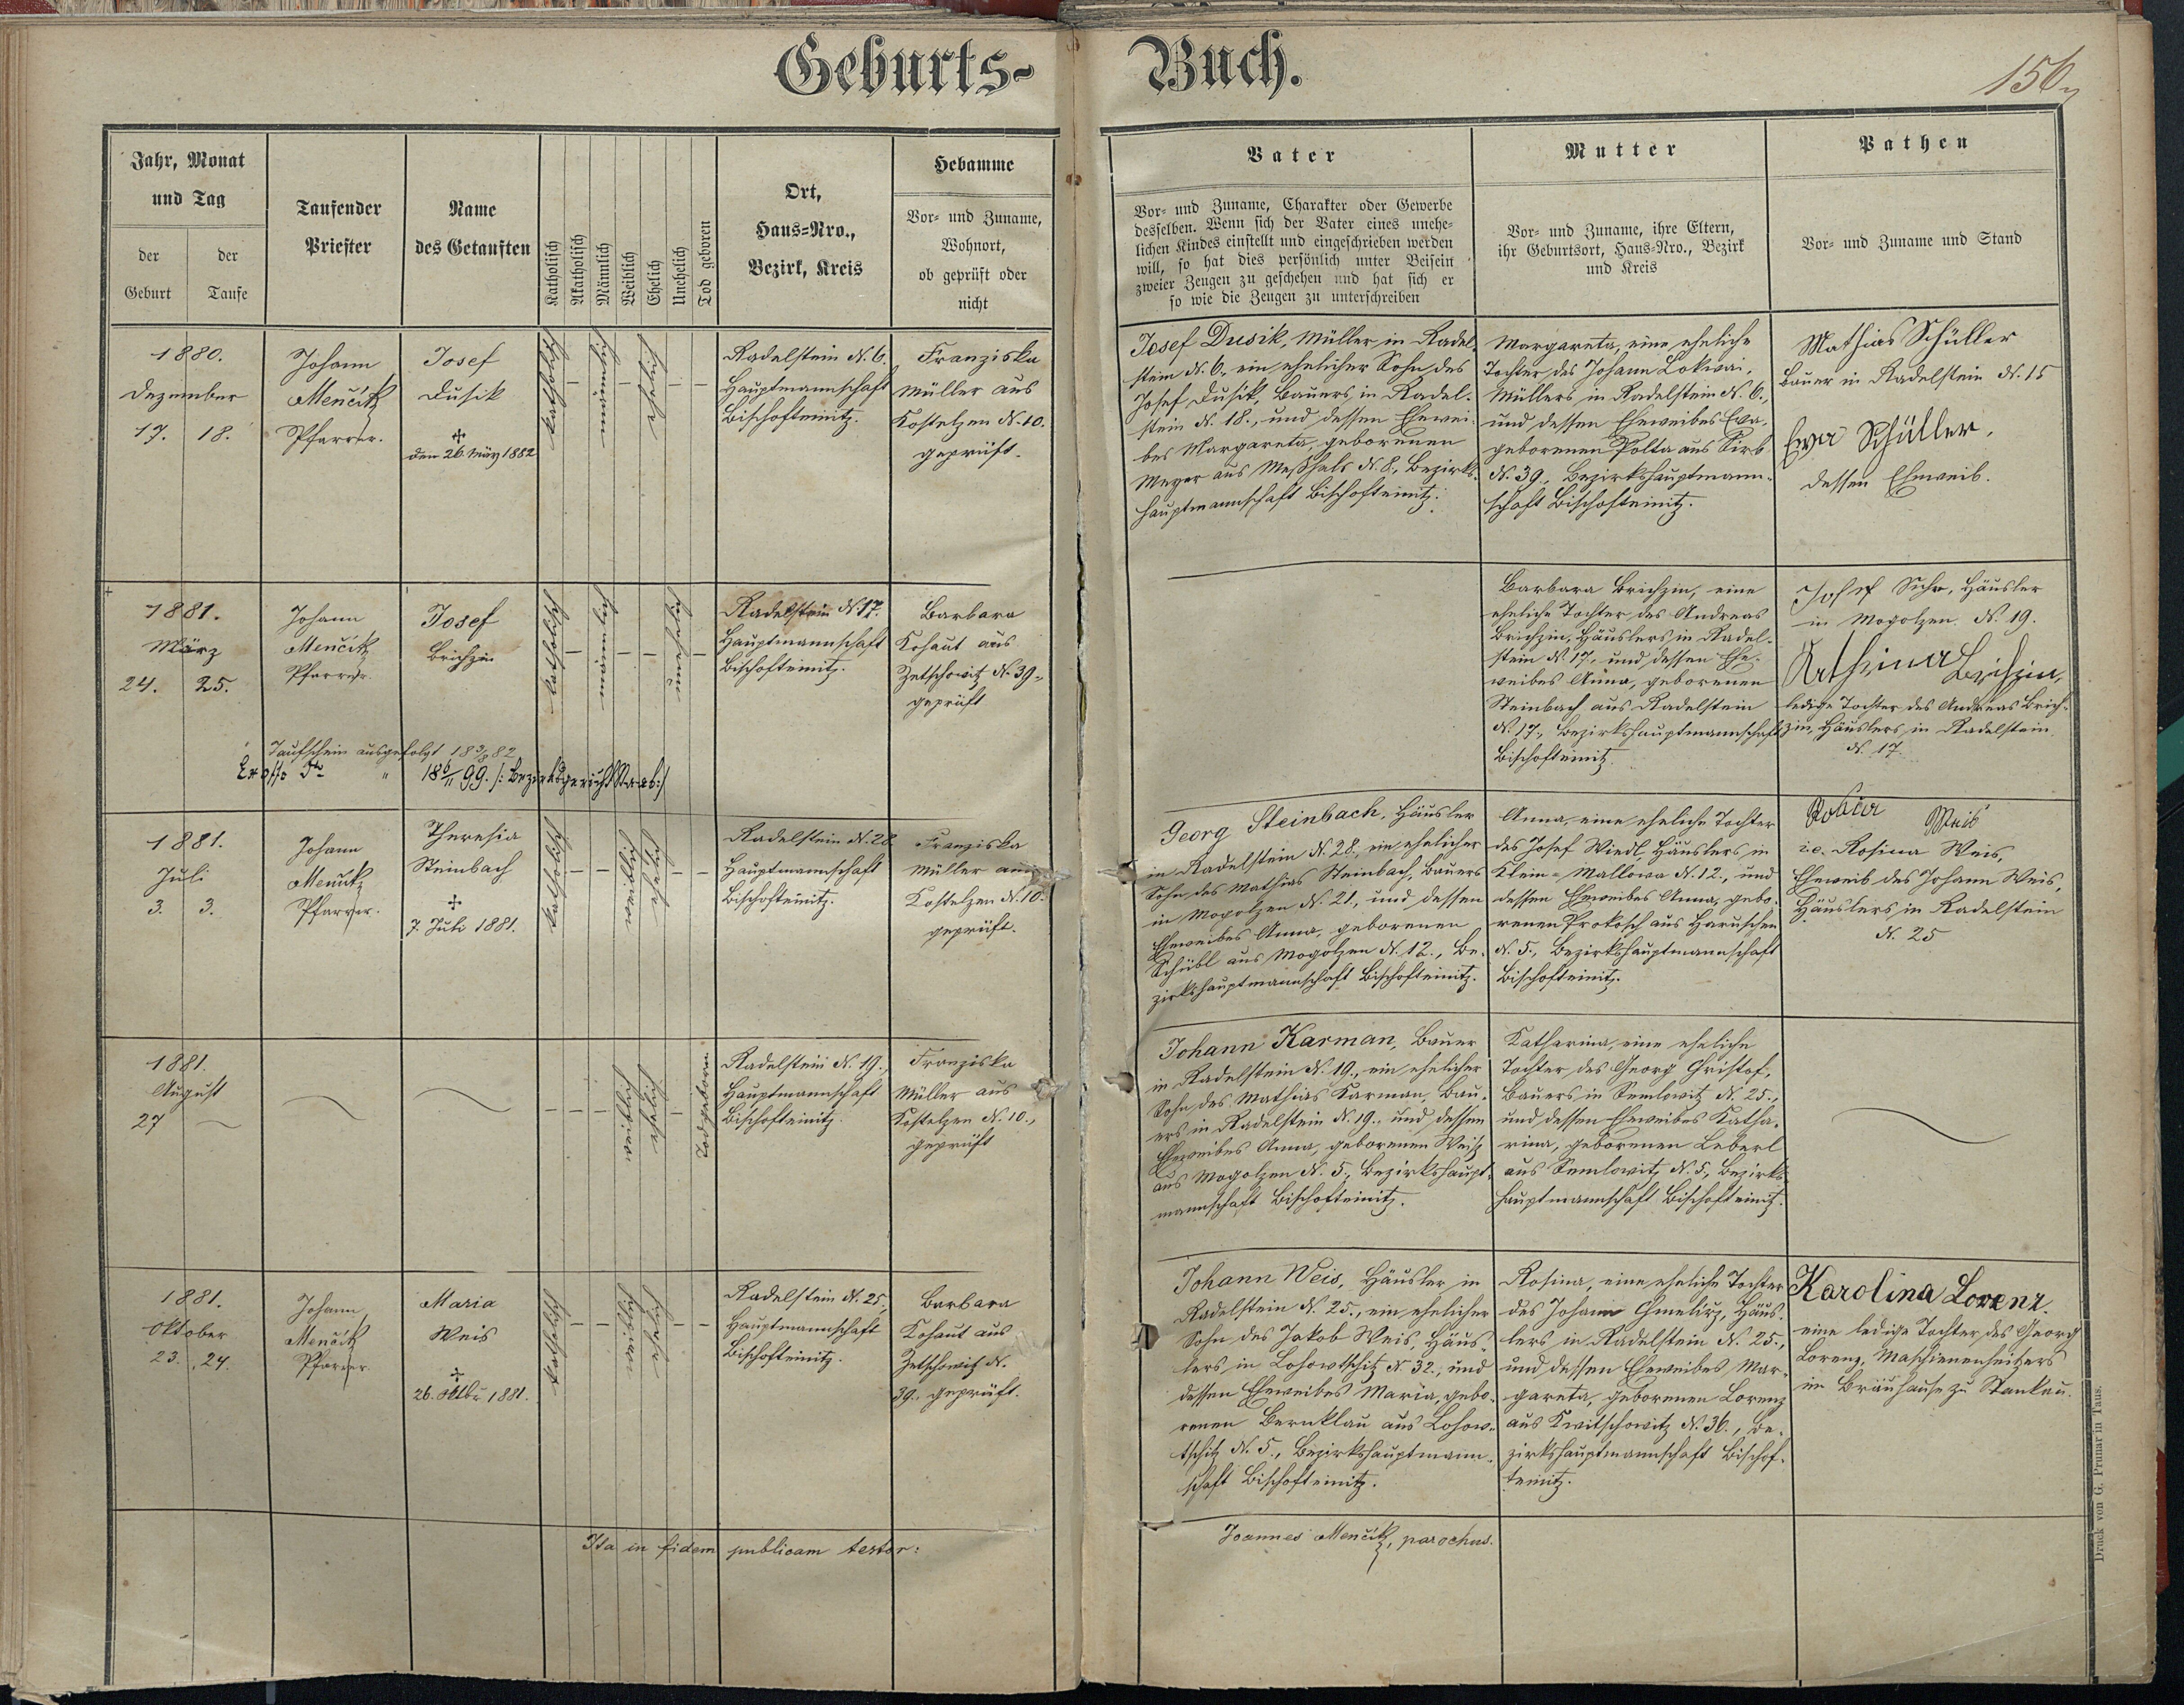 Geburts- Buch.
156
Jahr, Monat
und Tag
der Geburt
der Taufe
Taufender
Priester
Name
des Getauften
Katholisch
Akatholisch
Männlich
Weiblich
Ehelich
Unehelich
Tod geboren
Ort,
Haus-Nro.,
Bezirk, Kreis
Hebamme
Vor- und Zuname,
Wohnort,
ob geprüft oder
nicht
Vater
Vor- und Zuname, Charakter oder Gewerbe
desselben. Wenn sich der Vater eines unehe-
lichen Kindes einstellt und eingeschrieben werden
will, so hat dies persönlich unter Beisein
zweier Zeugen zu geschehen und hat sich er
so wie die Zeugen zu unterschreiben
Mutter
Vor- und Zuname, ihre Eltern,
ihr Geburtsort, Haus-Nro., Bezirk
und Kreis
Pathen
Vor- und Zuname und Stand
1880.
Dezember
17. 18.
Johann
Menčik
Pfarrer.
Josef
Dusik
den 26. März 1882
katholisch
männlich
ehelich
Radelstein N. 6.
Hauptmannschaft
Bischofteinitz.
Franziska
Müller aus
Kostelzen N. 10.
geprüft.
Josef Dusik, Müller in Radel-
stein N. 6., ein ehelicher Sohn des
Josef Dusik, Bauers in Radel-
stein N. 18., und dessen Ehewei-
bes Margareta, geborenen
Meyer aus Meßhals N. 8., Bezirks-
hauptmannschaft Bischofteinitz.
Margareta, eine eheliche
Tochter des Johann Lokwai,
Müllers in Radelstein N. 6.,
und dessen Eheweibes Eva,
geborenen Polta aus Sirb
N. 39., Bezirkshauptmann-
schaft Bischofteinitz.
Mathias Schüller
Bauer in Radelstein N. 15
Eva Schüller,
dessen Eheweib.
1881.
März
24. 25.
Johann
Menčik
Pfarrer.
Josef
Brichzin
katholisch
männlich
unehelich
Radelstein N. 17.
Hauptmannschaft
Bischofteinitz.
Barbara
Kohaut aus
Zetschowitz N. 39.,
geprüft
Barbara Brichzin, eine
eheliche Tochter des Andreas
Brichzin, Häuslers in Radel-
stein N. 17., und dessen Ehe-
weibes Anna, geborenen
Steinbach aus Radelstein
N. 17., Bezirkshauptmannschaft
Bischofteinitz.
Josef Suhr, Häusler
in Mogolzen N. 19.
Kathrina Brichzin,
ledige Tochter des Andreas Brich-
zin, Häuslers in Radelstein
N. 17.
Taufschein ausgefolgt 18 3/8 82
Ex offo " 18 6/11 99. /: Bezirksgericht Staab :/
1881.
Juli
3. 3.
Johann
Menčik
Pfarrer.
Theresia
Steinbach
7. Juli 1881.
katholisch
weiblich
ehelich
Radelstein N. 28.
Hauptmannschaft
Bischofteinitz.
Franziska
Müller aus
Kostelzen N. 10.
geprüft.
Georg Steinbach, Häusler
in Radelstein N. 28., ein ehelicher
Sohn des Mathias Steinbach, Bauers
in Mogolzen N. 21., und dessen
Eheweibes Anna, geborenen
Schübl aus Mogolzen N. 12., Be-
zirkshauptmannschaft Bischofteinitz.
Anna, eine eheliche Tochter
des Josef Wiedl, Häuslers in
Klein-Mallowa N. 12., und
dessen Eheweibes Anna, gebo-
renen Prokosch aus Haruschen
N. 5., Bezirkshauptmannschaft
Bischofteinitz.
Weis
i. e. Rosina Weis,
Eheweib des Johann Weis,
Häuslers in Radelstein
N. 25
1881.
August
27
weiblich
ehelich
Todgeboren
Radelstein N. 19.,
Hauptmannschaft
Bischofteinitz.
Franziska
Müller aus
Kostelzen N. 10.,
geprüft
Johann Karman, Bauer
in Radelstein N. 19., ein ehelicher
Sohn des Mathias Karman, Bau-
ers in Radelstein N. 19., und dessen
Eheweibes Anna, geborenen Weis
aus Mogolzen N. 5., Bezirkshaupt-
mannschaft Bischofteinitz.
Katharina, eine eheliche
Tochter des Georg Christof,
Bauers in Semlowitz N. 25.,
und dessen Eheweibes Katha-
rina, geborenen Leberl
aus Semlowitz N. 5., Bezirks-
hauptmannschaft Bischofteinitz.
1881.
Oktober
23. 24.
Johann
Menčik
Pfarrer
Maria
Weis
26. Oktbr. 1881.
katholisch
weiblich
ehelich
Radelstein N. 25.,
Hauptmannschaft
Bischofteinitz.
Barbara
Kohaut aus
Zetschowitz N.
39. geprüft.
Johann Weis, Häusler in
Radelstein N. 25., ein ehelicher
Sohn des Jakob Weis, Häus-
lers in Lohowtschitz N. 32., und
dessen Eheweibes Maria, gebo-
renen Bernklau aus Lohow-
tschitz N. 5., Bezirkshauptmann-
schaft Bischofteinitz.
Rosina, eine eheliche Tochter
des Johann Häus-
lers in Radelstein N. 25.,
und dessen Eheweibes Mar-
gareta, geborenen Lorenz
aus Kwitschowitz N. 36., Be-
zirkshauptmannschaft Bischof-
teinitz.
Karolina Lorenz.
eine ledige Tochter des Georg
Lorenz, Maschienenheitzers
im Bräuhause zu Stankau.
Ita in fidem publicam testor:
Joannes Menčik, parochus.
Druck von G. Prunar in Taus.